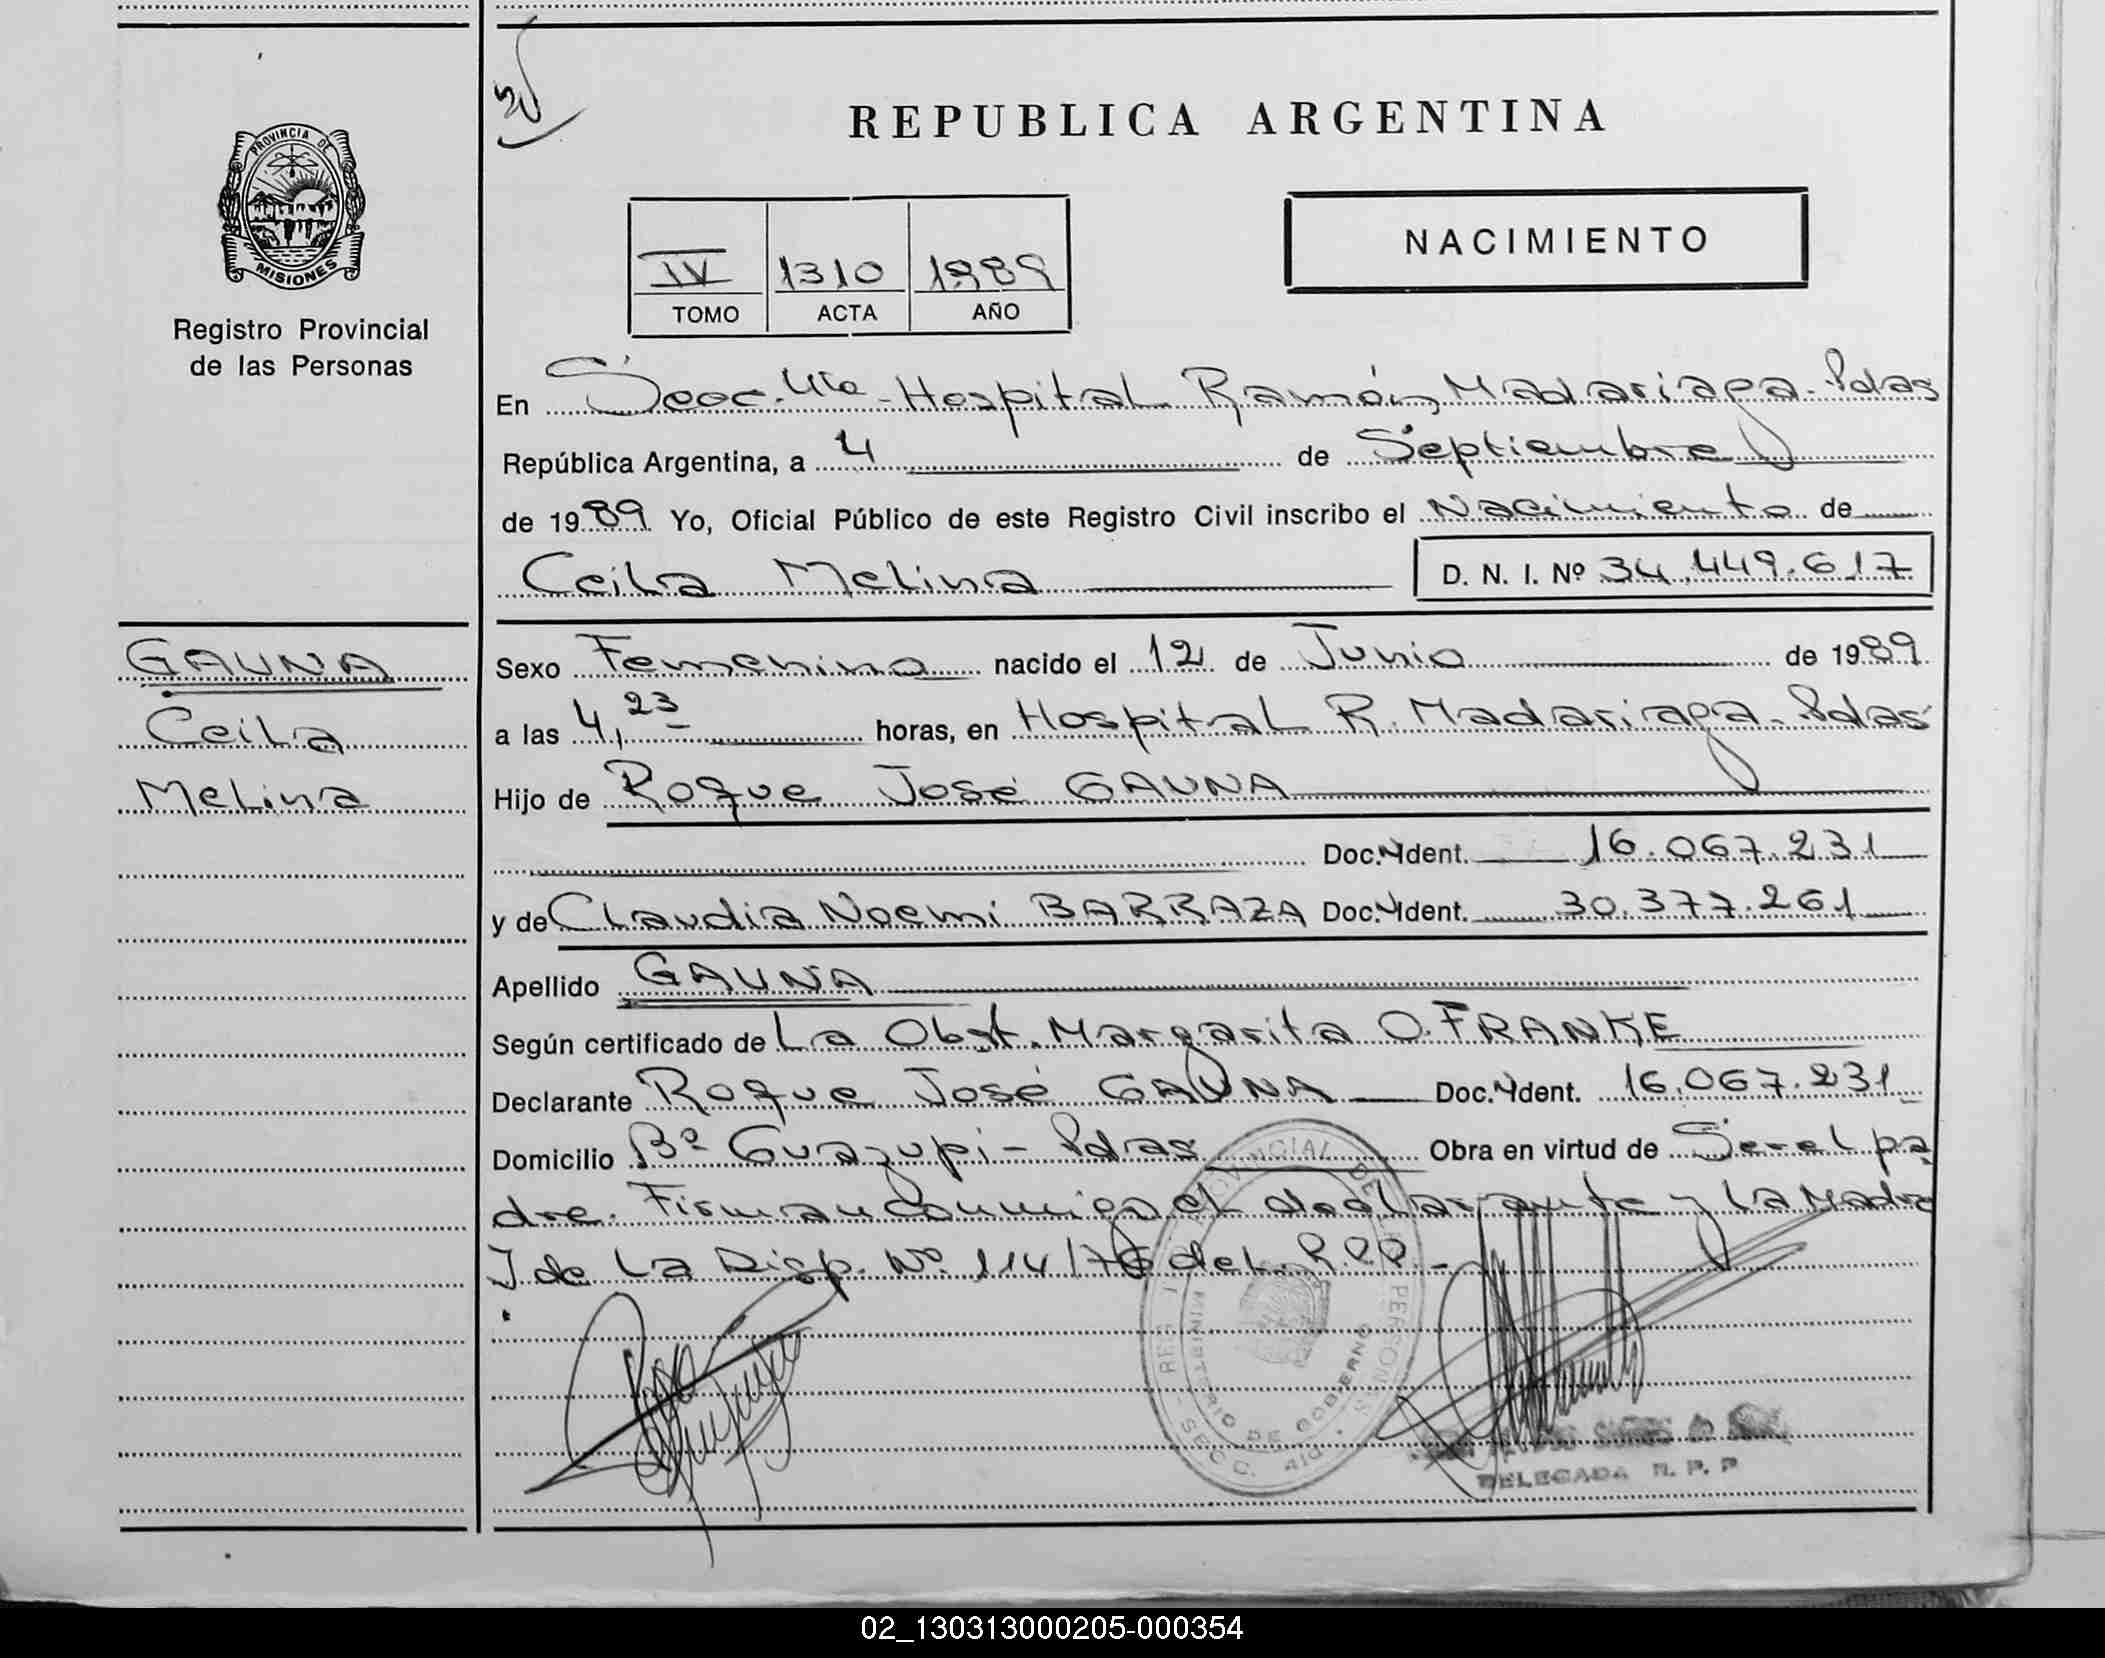 REPUBLICA ARGENTINA
PROVINCIA DE
MISIONES
Registro Provincial
de las Personas
IV 1310 1989
TOMO ACTA AÑO
NACIMIENTO
En Secc. 4ta - Hospital Ramón Madariaga - Pdas
República Argentina, a 4 de Septiembre
de 1989 Yo, Oficial Público de este Registro Civil inscribo el Nacimiento de
Ceila Melina D. N. I. Nº 34.449.617
GAUNA
Ceila
Melina
Sexo Femenino nacido el 12 de Junio de 1989
a las 4,23 horas, en Hospital R. Madariaga - Pdas
Hijo de Roque José GAUNA
Doc. Ident. 16.067.231
y de Claudia Noemi BARRAZA Doc. Ident. 30.377.261
Apellido GAUNA
Según certificado de La Obst. Margarita O. FRANKE
Declarante Roque José GAUNA Doc. Ident. 16.067.231
Domicilio Bº Guazupi - Pdas Obra en virtud de Ser el pa
dre. Firman conmigo el declarante y La Madre
J de La Disp. Nº 114/76 del R.P.P. -
MINISTERIO DE GOBIERNO
SECC. 4ta.
DELEGADA R. P. P
02_130313000205-000354